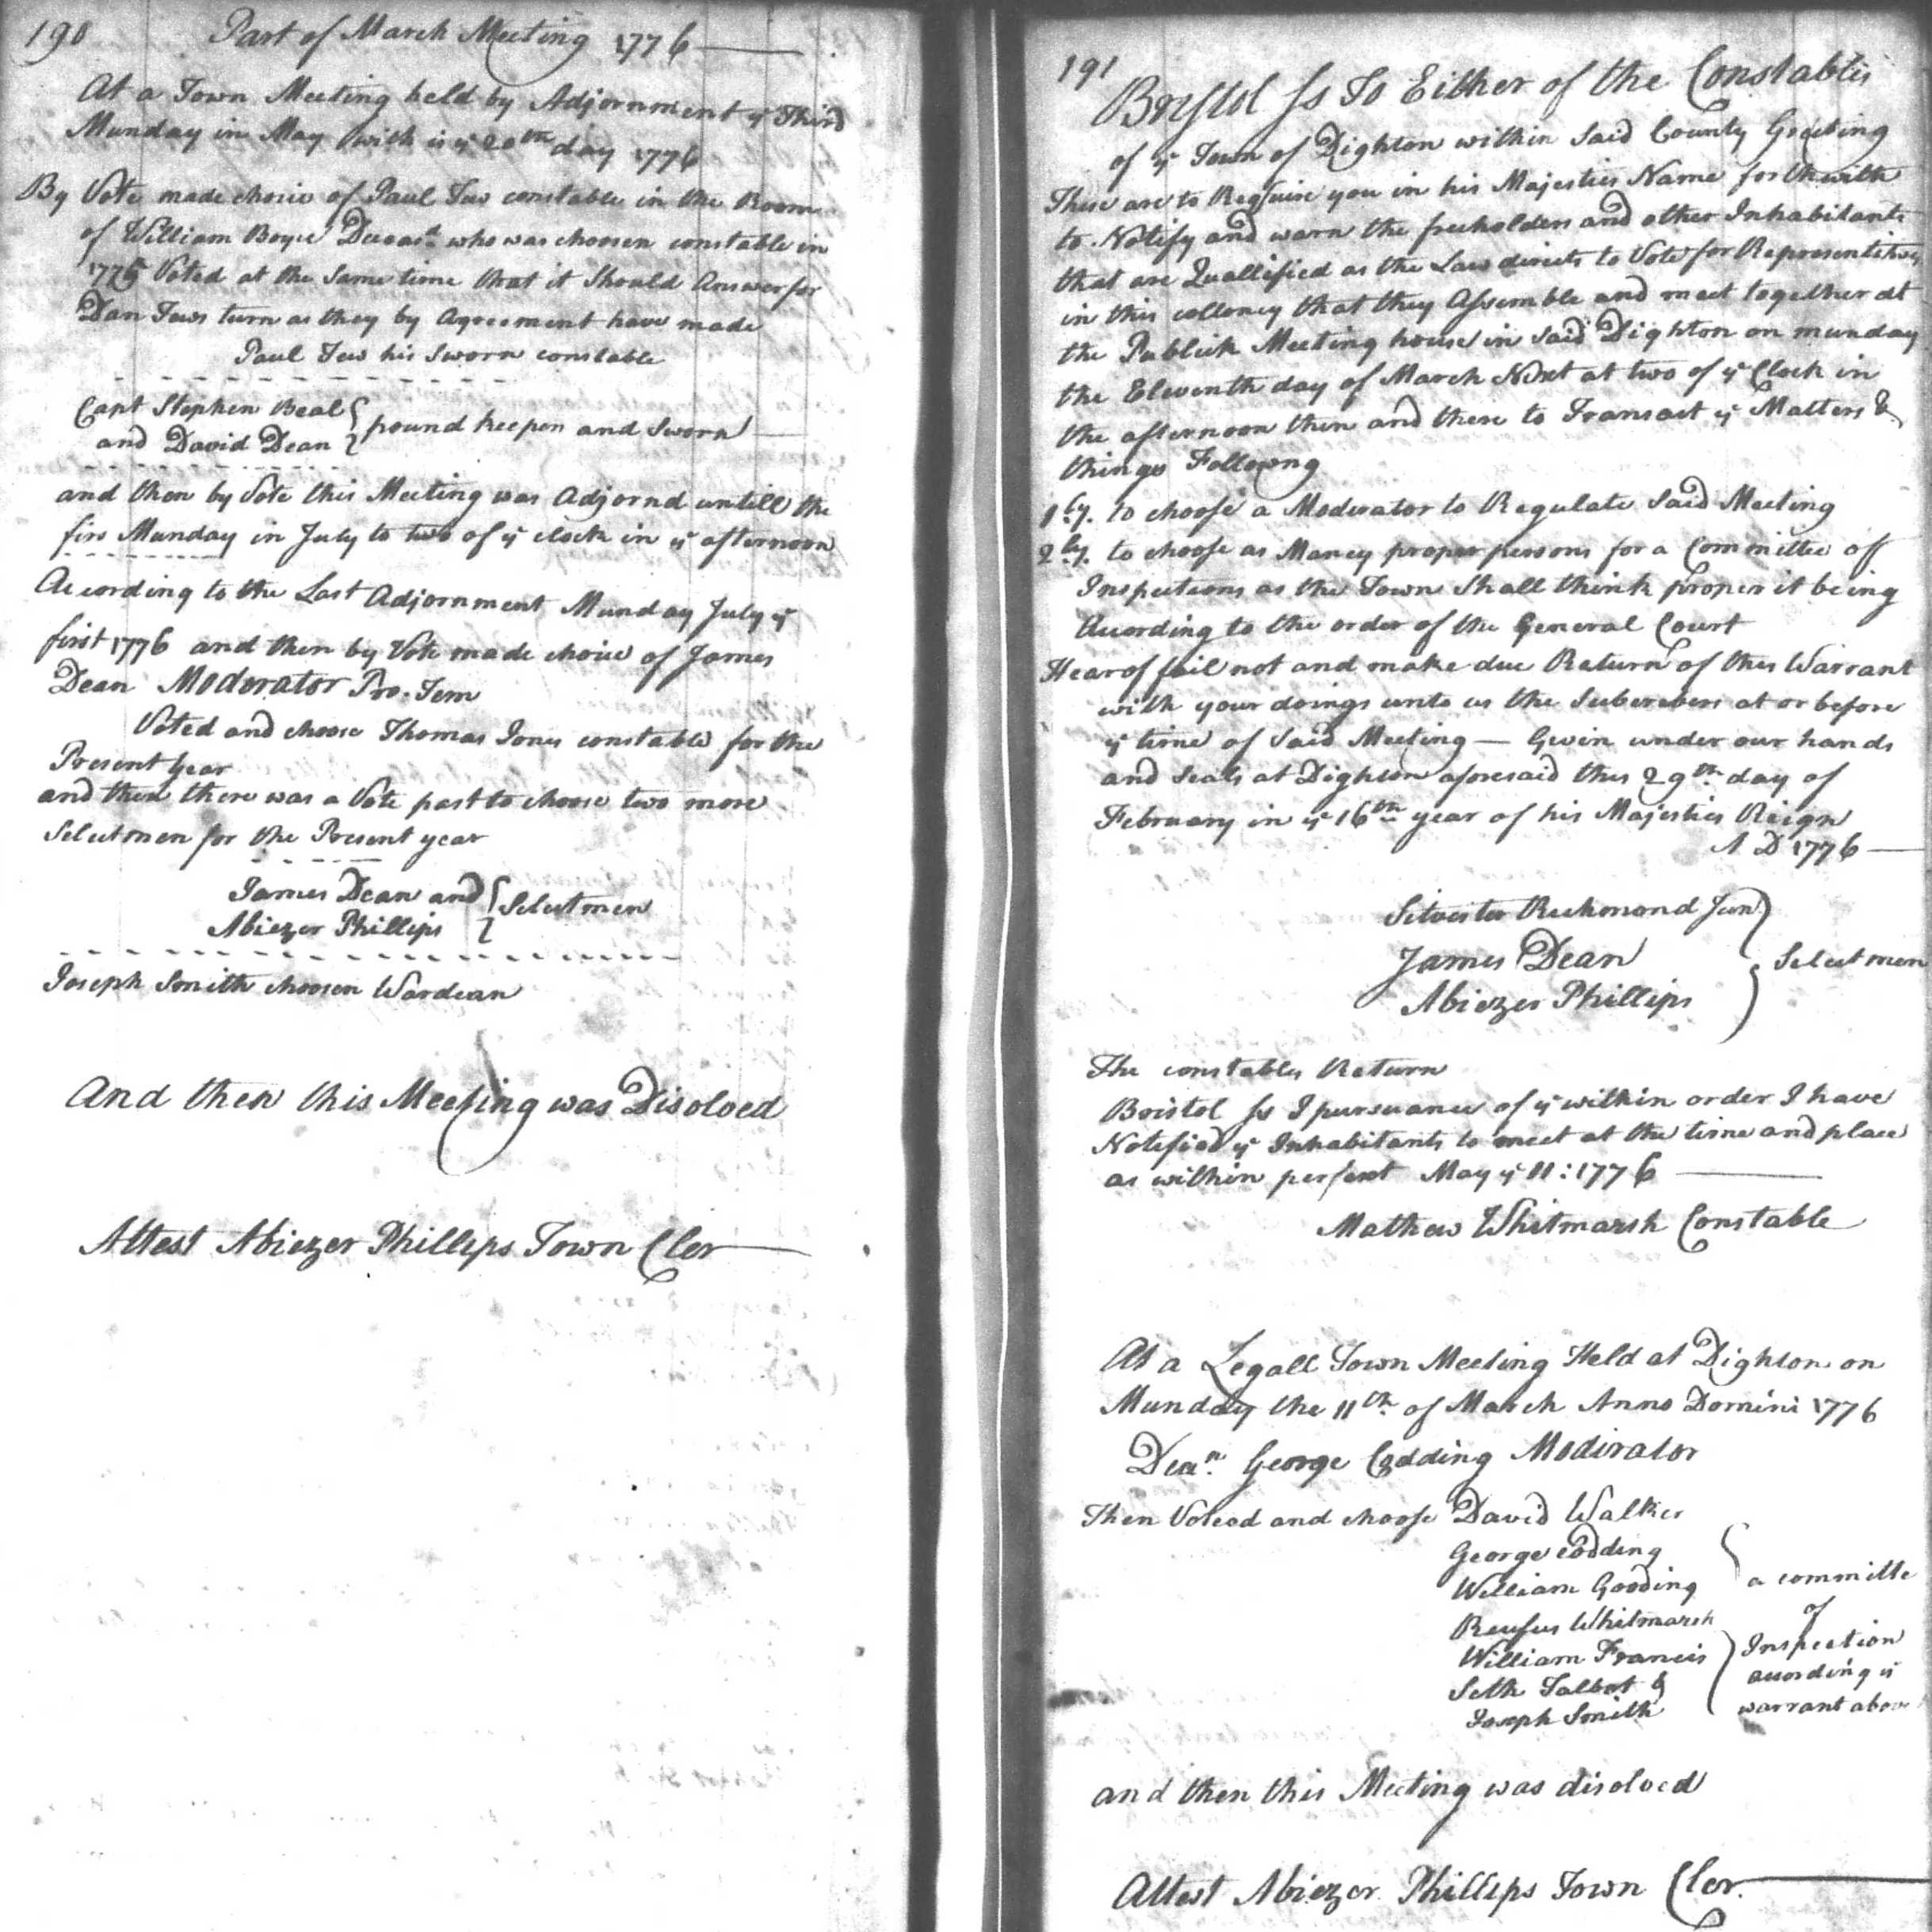 190 Part of March Meeting 1776
At a Town Meeting held by Adjornment ye Third
Munday in May with is ye 20th day 1776
By Vote made choice of Paul Tew constable in the Room
of William Boyce Deceast who was choosen constable in
1775 Voted at the Same time that it Should Answer for
Dan Tews turn as they by Agreement have made
Paul Tew his Sworn constable
Capt Stephen Beal
and David Dean } pound keepen and Sworn
and then by Vote this Meeting was Adjornd untill the
firs Munday in July to two of ye clock in ye afternoon
According to the Last Adjornment Munday July ye
first 1776 and then by Vote made choice of James
Dean Moderator Pro. Tem
Voted and choose Thomas Jones constable for the
Present Year
and then there was a Vote past to choose two more
Selectmen for the Present year
James Dean and
Abiezer Phillips } Selectmen
Joseph Smith choosen Wardean
And then this Meeting was Disolved
Attest Abiezer Phillips Town Cler
191
Bristol Ss To Either of the Constables
of ye Town of Dighton within Said County Greeting
These are to Require you in his Majesties Name forthwith
to Notify and warn the freeholders and other Inhabitants
that are Quallified as the Law directs to Vote for Representitives
in this colloney that they Assemble and meet together at
the Publick Meeting house in Said Dighton on munday
the Eleventh day of March Next at two of ye Clock in
the afternoon then and there to Transact ye Matters &
things Followng
1ly. to choose a Moderator to Regulate Said Meeting
2ly. to choose as Maney proper persons for a Committee off
Inspections as the Town Shall think proper it being
Acording to the order of the General Court
Hearof fail not and make due Return of this Warrant
with your doings unto us the Subscribers at or before
ye time of Said Meeting — Gevin under our hands
and Seals at Dighton aforesaid this 29th day of
February in ye 16th year of his Majesties Reign
A D 1776
Silvester Richmond Jun
James Dean
Abiezer Phillips } Selectmen
The constables Return
Bristol Ss I pursuance of ye within order I have
Notified ye Inhabitants to meet at the time and place
as within May ye 11: 1776
Mathew Whitmarsh Constable
At a Legall Town Meeting Held at Dighton on
Munday the 11th of March Anno Domini 1776
Dean George Codding Modirator
Then Voteod and choose David Walker
George Codding
William Gooding
Reufus Whitmarsh
William Francis
Seth Talbot &
Joseph Smith
a committe
of
Inspection
acording ye
warrant above
and then this Meeting was disolved
Attest Abiezer Phillips Town Cler.